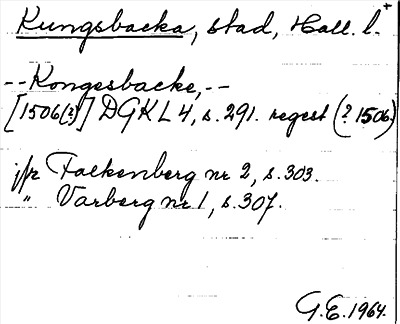 Kungsbacka, stad, Hall. l.+
--Kongesbacke,--
[1506(?)] DGKL4, s.291. regest (? 1506)
jfr Falkenberg nr 2, s.303.
" Varberg nr 1, s.307.
G.E.1964.